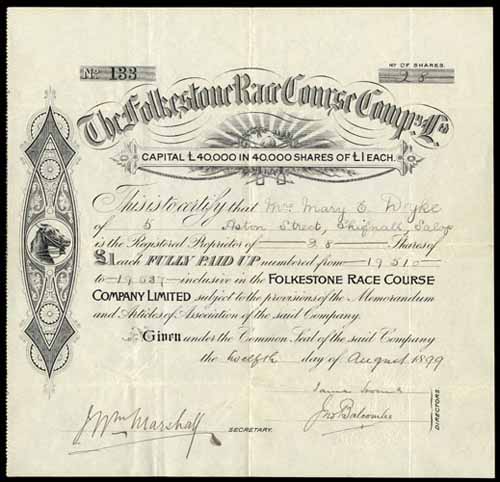 No 133
No OF SHARES.
28
The Folkestone Race Course Compy. Ld
CAPITAL £40,000 IN 40,000 SHARES OF £1 EACH.
This is to certify that Mrs Mary E.
of 5 Aston Street, Shifnall, Salop
is the Registered Proprietor of 28 Shares of
£1 each FULLY PAID UP numbered from 19510
to 19537 inclusive in the FOLKESTONE RACE COURSE
COMPANY LIMITED subject to the provisions of the Memorandum
and Articles of Association of the said Company.
Given under the Common Seal of the said Company
the twelfth day of August 1899
Jno Balcombe
DIRECTORS.
J. Wm Marshall
SECRETARY.